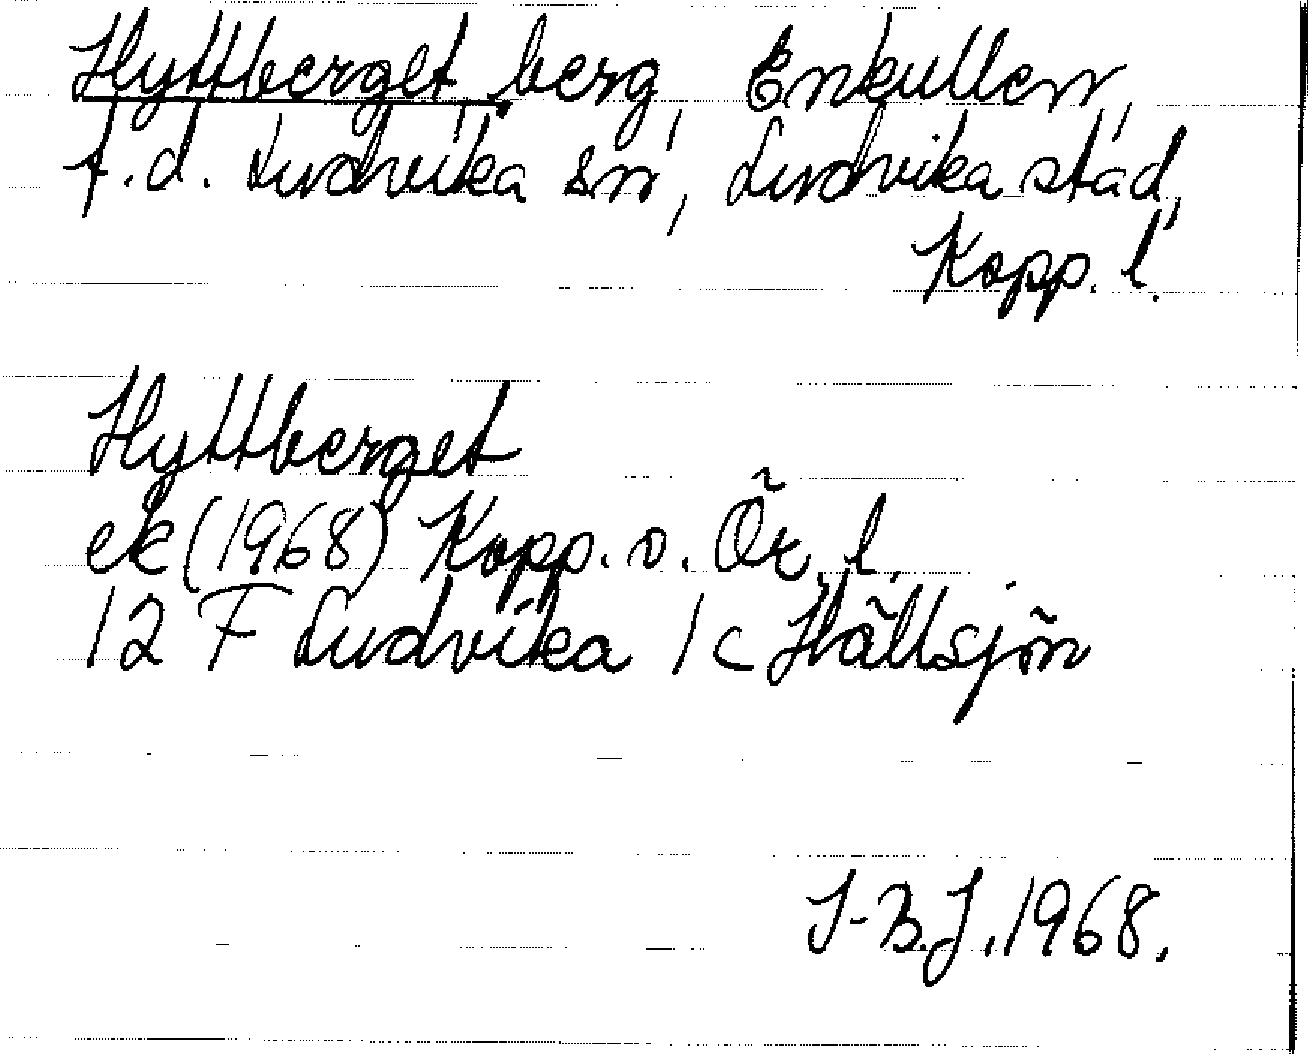 Hyttberget, berg, Enkullen,
f.d. Ludvika sn, Ludvika stad,
Kopp. l.
Hyttberget
ek (1968) Kopp. o. Ör. l.
12 F Ludvika 1 c Hällsjön
J-B.J. 1968.